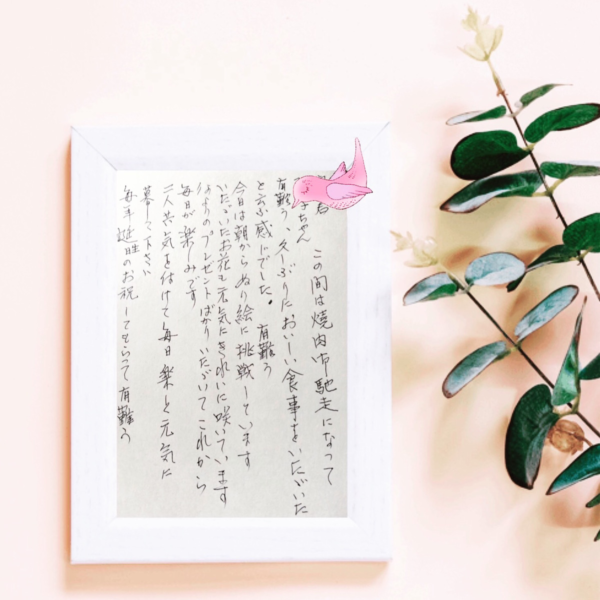 君
子ちゃん この間は焼肉御馳走になって
有難う、久しぶりにおいしい食事をいただいた
と云ふ感じでした。有難う
今日は朝からぬり絵に挑戦しています
いただいたお花も元気にきれいに咲いています
のプレゼントばかりいただいてこれから
毎日が楽しみです
二人共気を付けて毎日楽しと元気に
暮して下さい
毎年誕生のお祝してもらって有難う